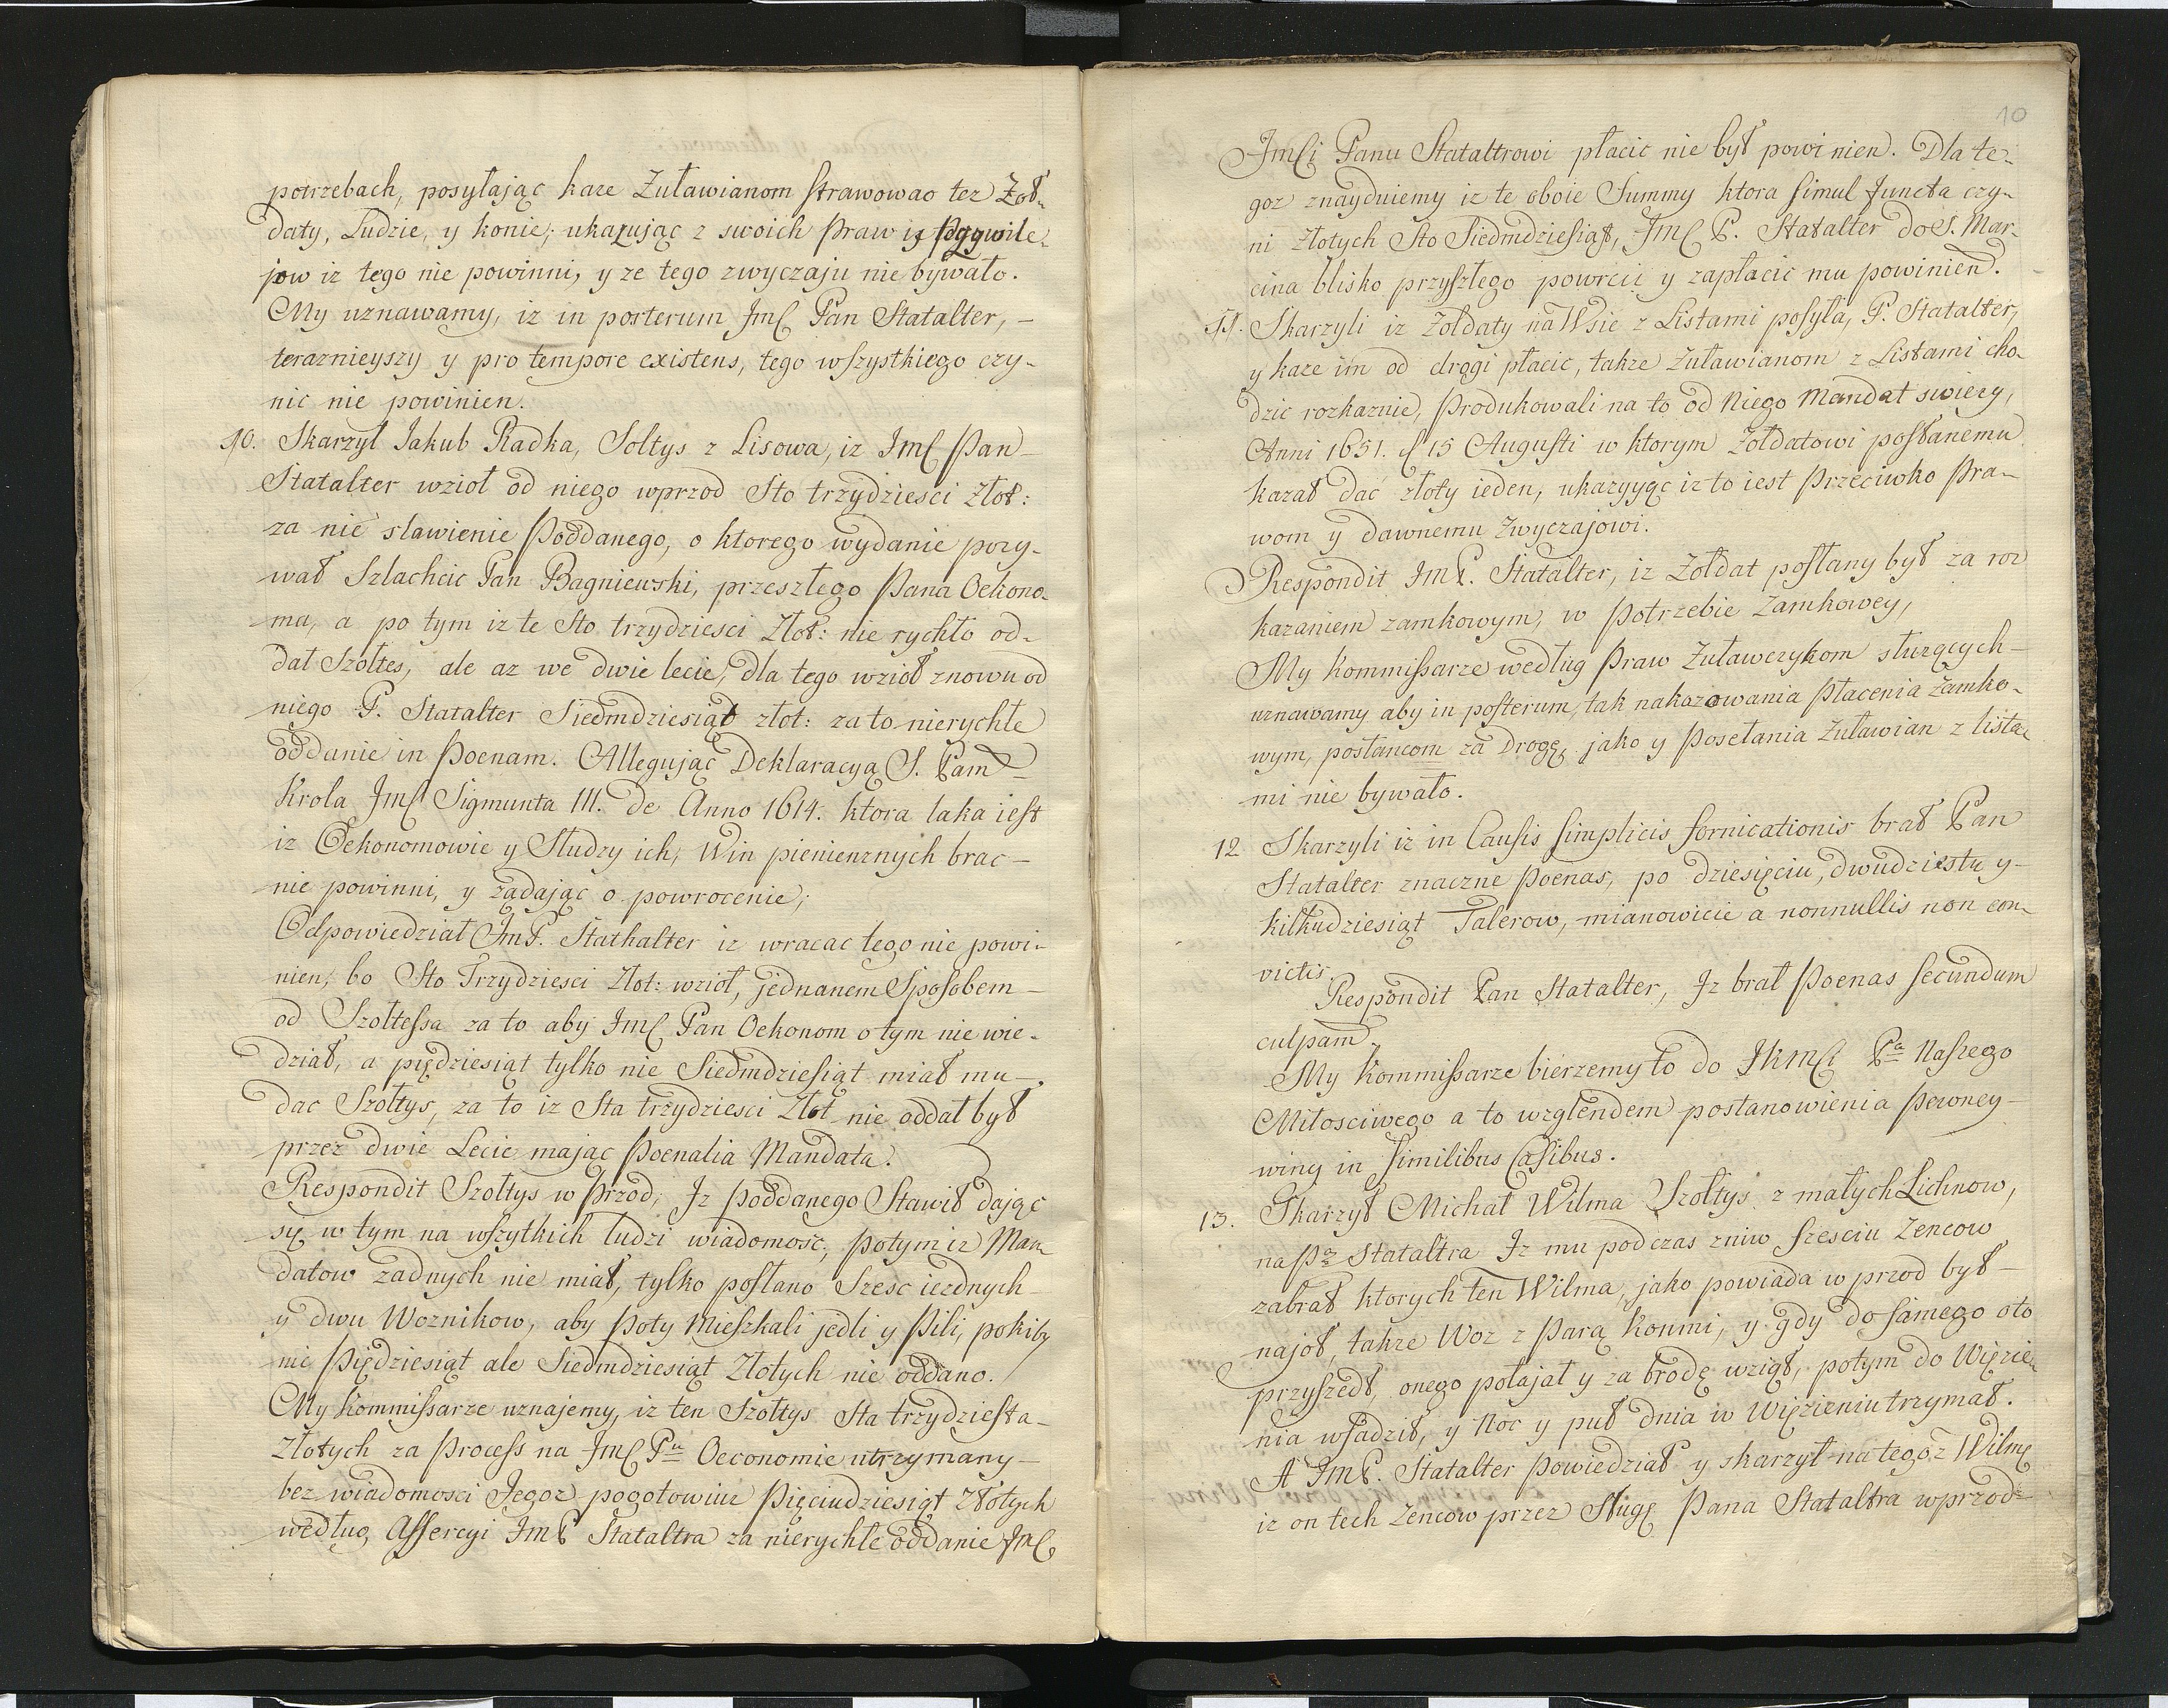 potrzebach, posyłając kaze Zuławianom strawowao tez Zoł-
daty, Ludzie, y konie; ukazując z swoich Praw iz Przywile-
jow iz tego nie powinni, y ze tego zwyczaju nie bywało.
My uznawamy, iz in posterum Jmć Pan Statalter, -
teraznieyszy y pro tempore existens, tego wszystkiego czy-
nic nie powinien.
10. Skarzyl Jakub Radka, Soltys z Lisowa, iz Jmć Pan -
Statalter wzioł od niego wprzod Sto trzydziesci złot:
za nie stawienie Poddanego, o ktorego wydanie pozy-
wał Szlachcic Pan Bagniewski, przeszłego Pana Oekono-
ma, a po tym iz te Sto trzydziesci złot: nie rychło od-
dał Szołtes, ale az we dwie lecie, dla tego wzioł znowu od
niego P. Statalter Siedmdziesiąt złot: za to nierychłe
oddanie in Poenam. Allegując Deklaracyą S. Pam -
Krola Jmć Sigmunta III. de Anno 1614. ktora taka iest
iz Oekonomowie y Słudzy ich, Win pienienznych brac -
nie powinni, y ządając o powrocenie;
Odpowiedział JmP. Stathalter iz wracac tego nie powi-
nien, bo Sto Trzydziesci Złot: wzioł, jednanem Sposobem -
od Szołtessa za to aby Jmć Pan Oekonom o tym nie wie-
dział, a piędziesiąt tylko nie Siedmdziesiąt miał mu -
dac Szołtys, za to iz Sta trzydziesci Złot nie oddał był
przez dwie Lecie mając Poenalia Mandata.
Respondit Szołtys w Przod; Jz poddanego Stawił dając
się w tym na wszytkich ludzi wiadomosc; potym iz Man-
datow zadnych nie miał, tylko posłano Szesc iezdnych -
y dwu Woznikow, aby Poty Mieszkali jedli y Pili, pokiby
nie Piędziesiąt ale Siedmdziesiąt Złotych nie oddano.
My Kommissarze uznajemy, iz ten Szołtys Sta trzydziesta -
Złotych za Process na Jmć Pu Oeconomie utrzymany -
bez wiadomosci Jegoz pogotowiuz Pięciudziesiąt złotych
według Assercyi JmP Stataltra za nierychłe oddanie Jmć
10
Jmći Panu Stataltrowi płacic nie był powinien. Dla te-
goz znayduiemy iz te oboie Summy ktora simul Juncta czy-
ni złotych Sto Siedmdziesiąt, Jmć P. Statalter do S. Mar-
cina blisko przyszłego powrcii y zapłacic mu powinien.
11. Skarzyli iz Zołdaty na Wsie z Listami posyła, P. Statalter,
y kaze im od drogi płacic, takze Zuławianom z Listami cho-
dzic rozkaznie, Produkowali na to od Niego Mandat swiezy,
Anni 1651. d 15 Augusti w ktorym Zołdatowi posłanemu
kazał dać złoty ieden, ukazyyąc iz to iest Przeciwko Pra-
wom y dawnemu Zwyczajowi.
Respondit JmP. Statalter, iz Zołdat posłany był za roz
kazaniem zamkowym, w Potrzebie Zamkowey,
My Kommissarze według Praw Zuławczykom słuzących -
uznawamy aby in posterum, tak nakazowania płacenia Zamko-
wym, posłancom za Drogę, jako y Posełania Zuławian z lista-
mi nie bywało.
12 Skarzyli iz in Causis simplicis fornicationis brał Pan
Statalter znaczne Poenas, po dziesięciu, dwudziestu y -
kilkudziesiąt Talerow, mianowicie a nonnullis non con-
victis.
Respondit Pan Statalter, Jz brał Poenas secundum
culpam
My Kommissarze bierzemy to do JKmći Pa Naszego
Miłosciwego a to wzglendem postanowienia Pewney -
winy in similibus Casibus.
13. Skarzył Michał Wilma Szołtys z małych Lichnow,
na Pa Stataltra Jz mu podczas zniw szesciu Zencow
zabrał ktorych ten Wilma, jako powiada w przod był -
najoł, takze Woz z Parą Konmi, y gdy do samego oto
przyszedł, onego połajał y za brodę wziął, potym do Więzie-
nia wsadził, y Noc y puł dnia w Więzieniu trzymał.
A JmP. Statalter Powiedział y skarzył na tegoż Wilmę
iz on tech Zencow przez Sługę Pana Stataltra wprzod-